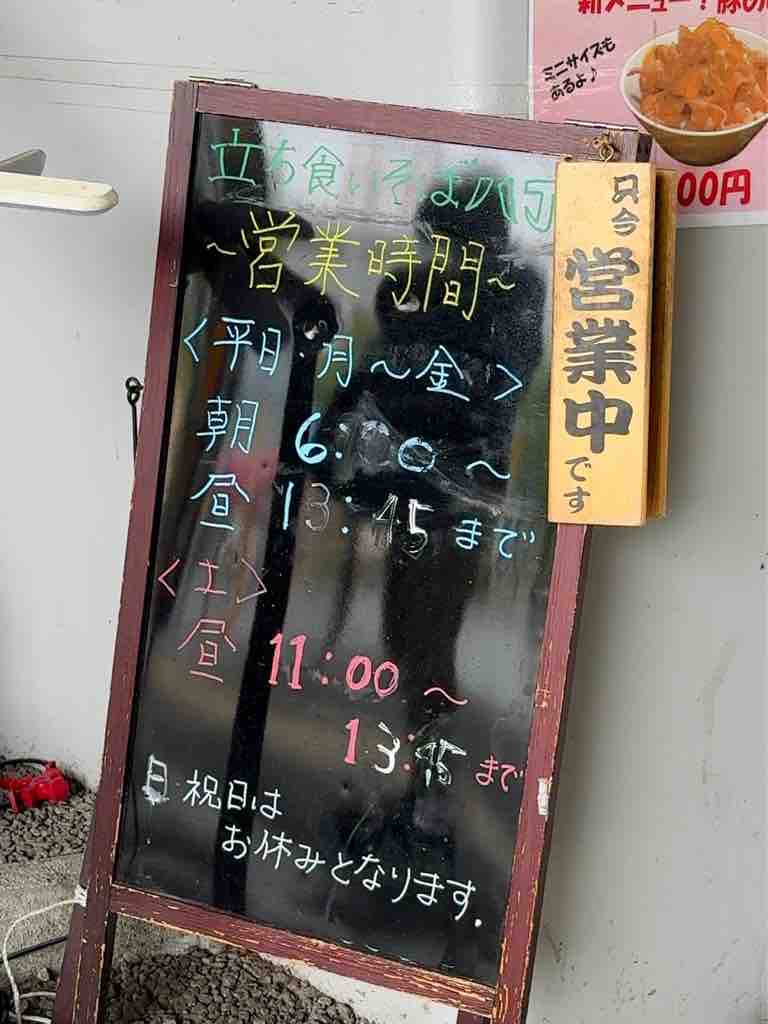 立ち食いそば八丁
～営業時間～
＜平日・月～金＞
朝 6:00～
昼 13:45まで
＜土＞
昼 11:00～
13:45まで
日・祝日は
お休みとなります.
只今
営業中
です
新メニュー！豚
ミニサイズも
あるよ♪
00円